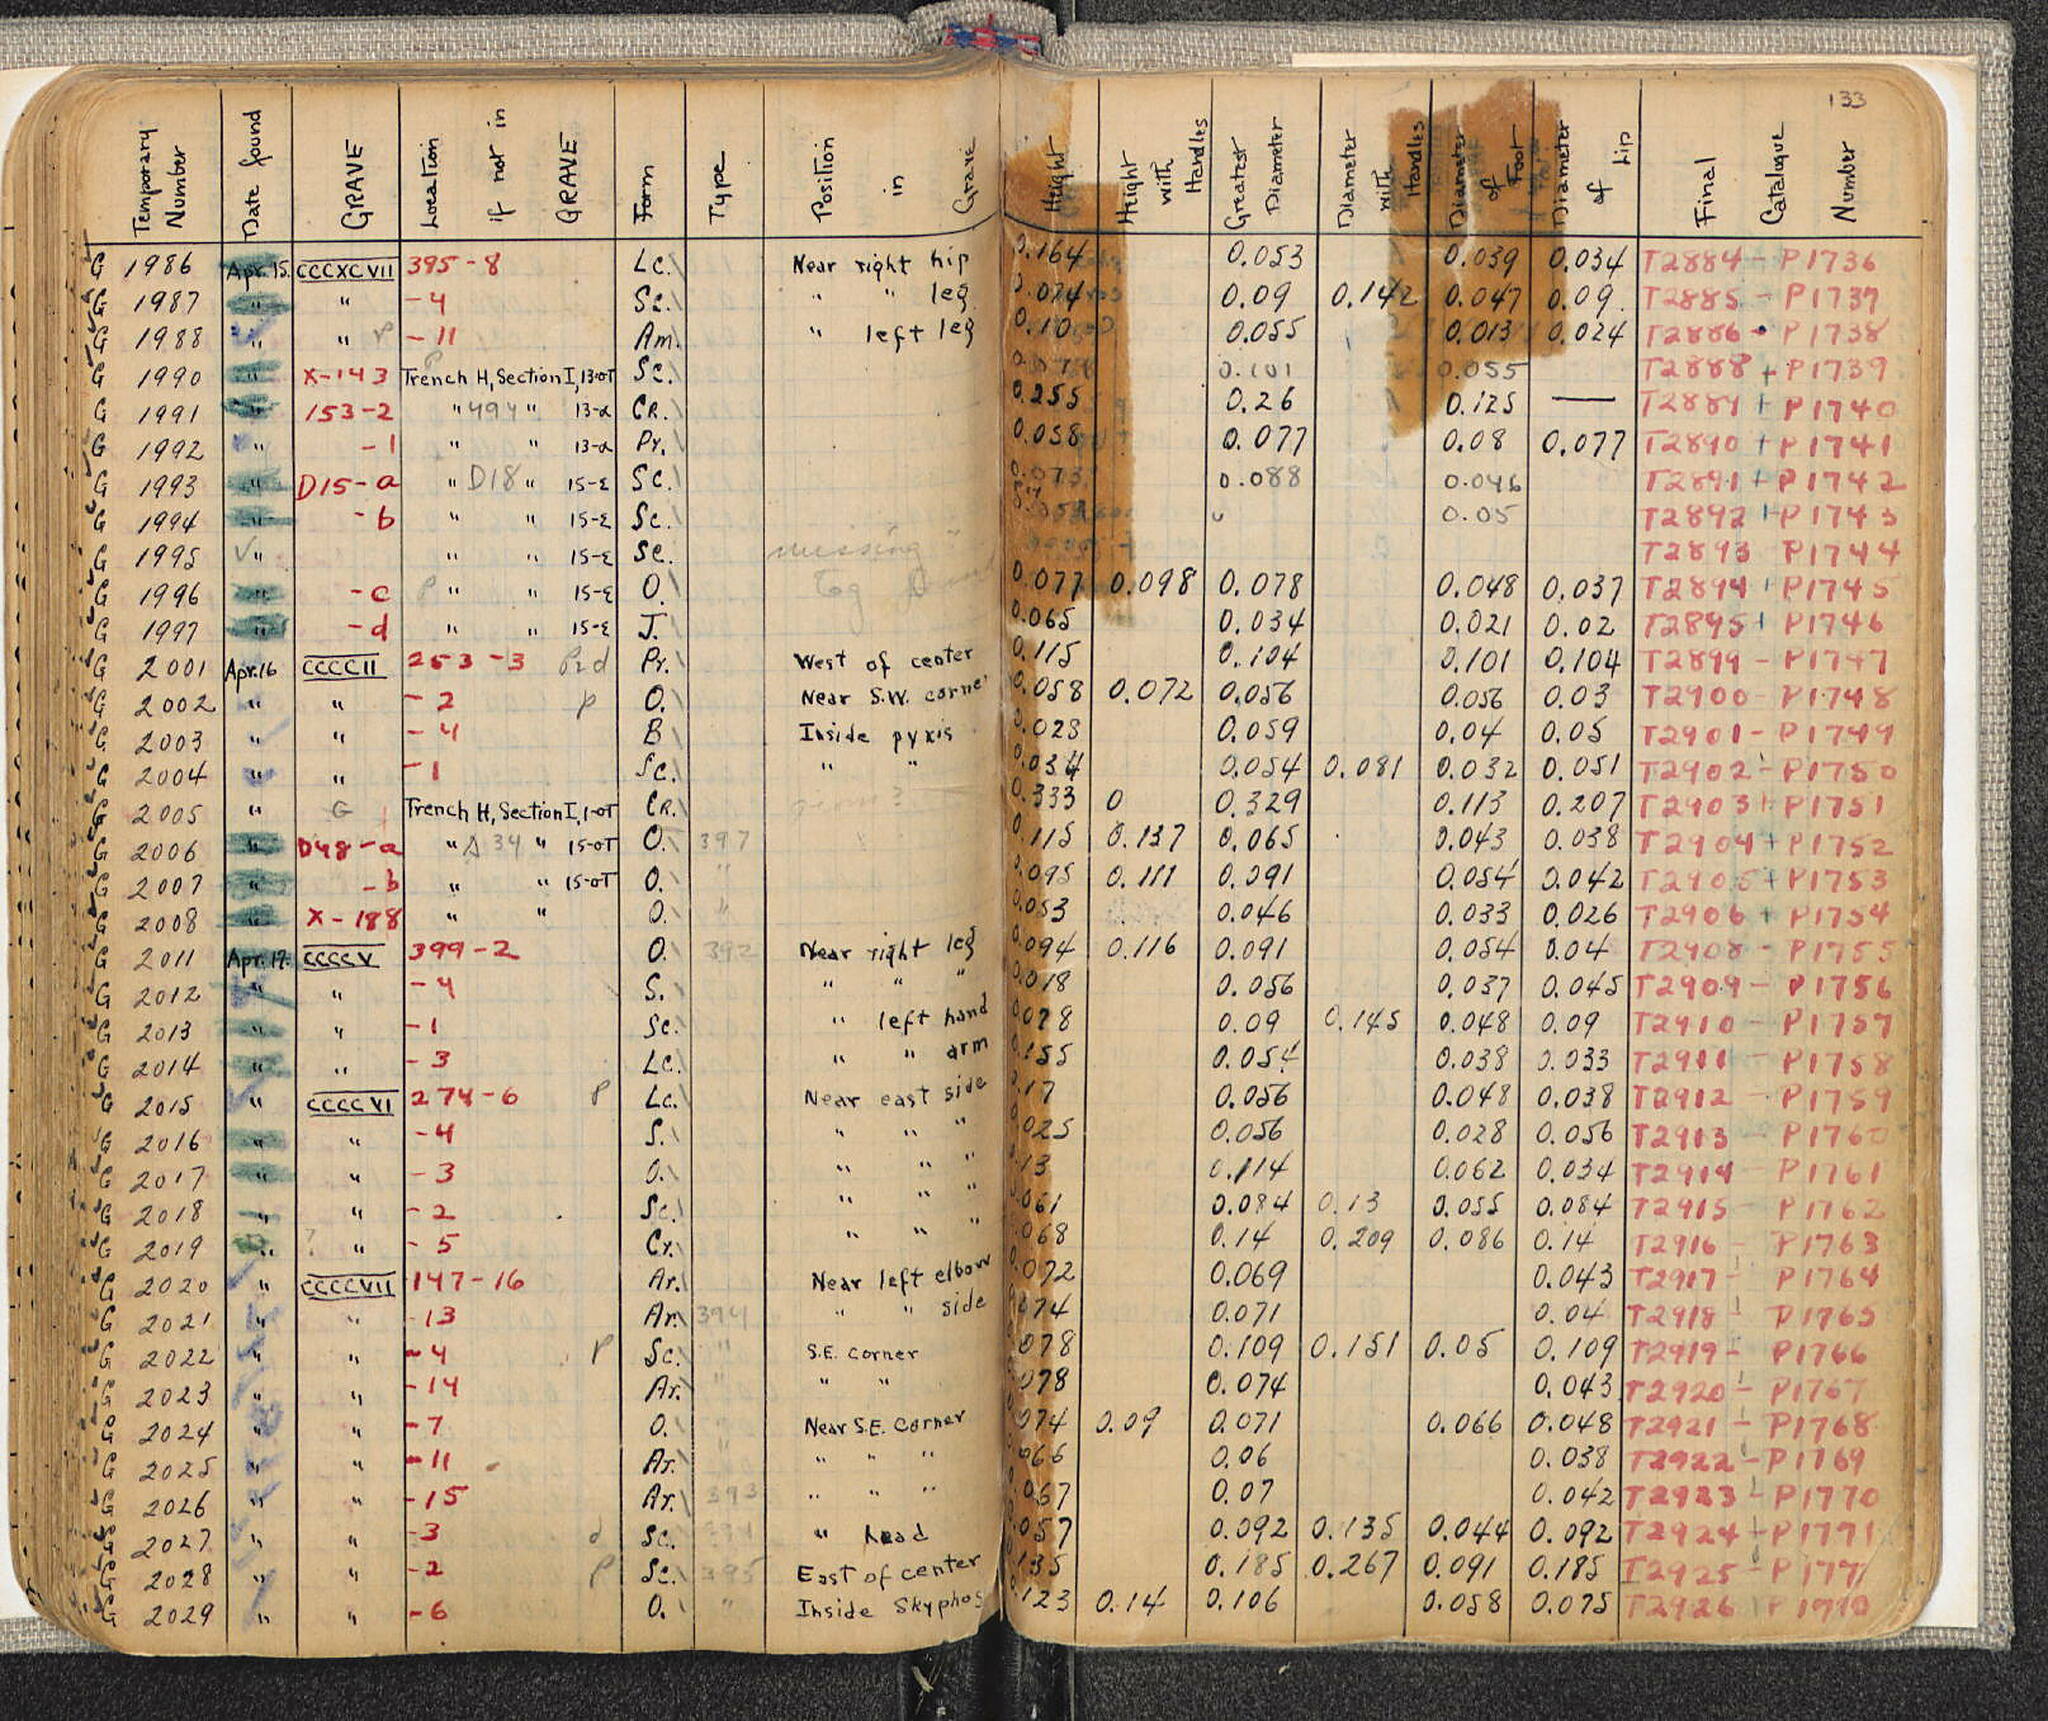 133
Temporary Number | Date found | GRAVE | Location if not in GRAVE | Form | Type | Position in Grave | Height | Height with Handles | Greatest Diameter | Diameter with Handles | Diameter of Foot | Diameter of Lip | Final Catalogue Number
G 1986 Apr. 15. CCCXCVII 395-8 Lc. Near right hip 0.164 0.053 0.039 0.034 T2884 - P1736
G 1987 " " -4 Sc. " " leg 0.074 0.09 0.142 0.047 0.09. T2885 - P1737
G 1988 " " P -11 Am. " left leg 0.10 0.055 0.013 0.024 T2886 - P1738
G 1990 " X-143 Trench H, Section I, 13-OT Sc. 0.101 0.055 T2888 + P1739
G 1991 " 153-2 " 494 " 13-α CR. 0.255 0.26 0.125 — T2889 + P1740
G 1992 " -1 " " 13-α Pr. 0.058 0.077 0.08 0.077 T2890 + P1741
G 1993 " D15-a " D18 " 15-ε Sc. 0.073 0.088 0.046 T2891 + P1742
G 1994 " -b " " 15-ε Sc. 0.05 T2892 + P1743
G 1995 " " " 15-ε Sc. missing T2893 P1744
G 1996 " -c P " " 15-ε O. Tag 0.077 0.098 0.078 0.048 0.037 T2894 + P1745
G 1997 " -d " " 15-ε J. 0.065 0.034 0.021 0.02 T2895 + P1746
G 2001 Apr. 16 CCCCII 253-3 P2d Pr. West of center 0.115 0.104 0.101 0.104 T2899 - P1747
G 2002 " " -2 p O. Near S.W. corner 0.058 0.072 0.056 0.056 0.03 T2900 - P1748
G 2003 " " -4 B Inside pyxis 0.028 0.059 0.04 0.05 T2901 - P1749
G 2004 " " -1 Sc. " " 0.034 0.054 0.081 0.032 0.051 T2902 - P1750
G 2005 " G Trench H, Section I, 1-OT CR. 0.333 0 0.329 0.113 0.207 T2903 + P1751
G 2006 " D48-a " Δ 34 " 15-OT O. 397 0.115 0.137 0.065 0.043 0.038 T2904 + P1752
G 2007 " -b " " 15-OT O. " 0.095 0.111 0.091 0.054 0.042 T2905 + P1753
G 2008 " X-188 " " O. " 0.053 0.046 0.033 0.026 T2906 + P1754
G 2011 Apr. 17. CCCCV 399-2 O. 392 Near right leg 0.094 0.116 0.091 0.054 0.04 T2908 - P1755
G 2012 " " -4 S. " " " 0.018 0.056 0.037 0.045 T2909 - P1756
G 2013 " " -1 Sc. " left hand 0.078 0.09 0.145 0.048 0.09 T2910 - P1757
G 2014 " " -3 Lc. " " arm 0.155 0.054 0.038 0.033 T2911 - P1758
G 2015 " CCCCVI 274-6 P Lc. Near east side 0.17 0.056 0.048 0.038 T2912 - P1759
G 2016 " " -4 S. " " " 0.025 0.056 0.028 0.056 T2913 P1760
G 2017 " " -3 O. " " " 0.13 0.114 0.062 0.034 T2914 - P1761
G 2018 " " -2 Sc. " " " 0.061 0.084 0.13 0.055 0.084 T2915 - P1762
G 2019 " ? " -5 Cy. " " " 0.068 0.14 0.209 0.086 0.14 T2916 - P1763
G 2020 " CCCCVII 147-16 Ar. Near left elbow 0.072 0.069 0.043 T2917 - P1764
G 2021 " " -13 Ar. 394 " " side 0.074 0.071 0.04 T2918 - P1765
G 2022 " " -4 P Sc. " S.E. corner 0.078 0.109 0.151 0.05 0.109 T2919 - P1766
G 2023 " " -14 Ar. " " " 0.078 0.074 0.043 T2920 - P1767
G 2024 " " -7 O. " Near S.E. corner 0.074 0.09 0.071 0.066 0.048 T2921 - P1768
G 2025 " " -11 Ar. " " " " 0.066 0.06 0.038 T2922 - P1769
G 2026 " " -15 Ar. 393 " " " 0.067 0.07 0.042 T2923 - P1770
G 2027 " " -3 d Sc. 394 " head 0.057 0.092 0.135 0.044 0.092 T2924 - P1771
G 2028 " " -2 P Sc. 395 East of center 0.135 0.185 0.267 0.091 0.185 T2925 - P177
G 2029 " " -6 O. " Inside Skyphos 0.123 0.14 0.106 0.058 0.075 T2926